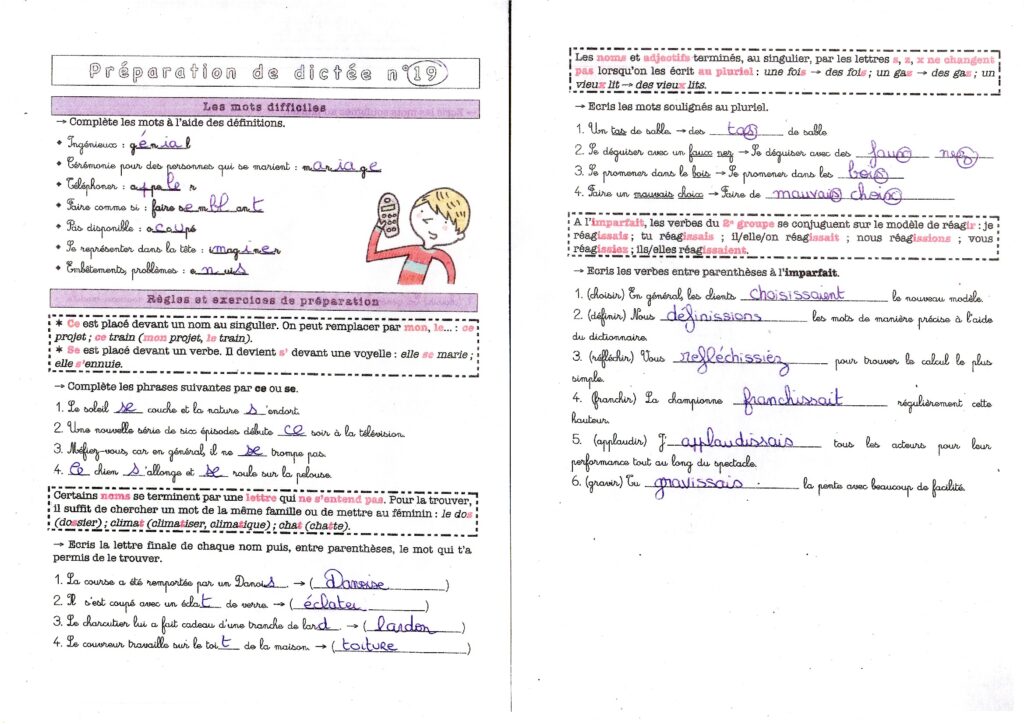 Préparation de dictée n°19
Les mots difficiles
→ Complète les mots à l'aide des définitions.
• Ingénieux : génial
• Cérémonie pour des personnes qui se marient : mariage
• Téléphoner : appeler
• Faire comme si : faire semblant
• Pas disponible : occupé
• Se représenter dans la tête : imaginer
• Embêtements, problèmes : ennuis
Règles et exercices de préparation
* Ce est placé devant un nom au singulier. On peut remplacer par mon, le... : ce
projet ; ce train (mon projet, le train).
* Se est placé devant un verbe. Il devient s' devant une voyelle : elle se marie ;
elle s'ennuie.
→ Complète les phrases suivantes par ce ou se.
1. Le soleil se couche et la nature s'endort.
2. Une nouvelle série de six épisodes débute ce soir à la télévision.
3. Méfiez-vous, car en général, il ne se trompe pas.
4. Ce chien s'allonge et se roule sur la pelouse.
Certains noms se terminent par une lettre qui ne s'entend pas. Pour la trouver,
il suffit de chercher un mot de la même famille ou de mettre au féminin : le dos
(dossier) ; climat (climatiser, climatique) ; chat (chatte).
→ Ecris la lettre finale de chaque nom puis, entre parenthèses, le mot qui t'a
permis de le trouver.
1. La course a été remportée par un Danois. → (Danoise)
2. Il s'est coupé avec un éclat de verre. → (éclater)
3. Le charcutier lui a fait cadeau d'une tranche de lard. → (lardon)
4. Le couvreur travaille sur le toit de la maison. → (toiture)
Les noms et adjectifs terminés, au singulier, par les lettres s, z, x ne changent
pas lorsqu'on les écrit au pluriel : une fois → des fois ; un gaz → des gaz ; un
vieux lit → des vieux lits.
→ Ecris les mots soulignés au pluriel.
1. Un tas de sable. → des tas de sable
2. Se déguiser avec un faux nez → Se déguiser avec des faux nez
3. Se promener dans le bois → Se promener dans les bois
4. Faire un mauvais choix → Faire de mauvais choix
A l'imparfait, les verbes du 2e groupe se conjuguent sur le modèle de réagir : je
réagissais ; tu réagissais ; il/elle/on réagissait ; nous réagissions ; vous
réagissiez ; ils/elles réagissaient.
→ Ecris les verbes entre parenthèses à l'imparfait.
1. (choisir) En général, les clients choisissaient le nouveau modèle.
2. (définir) Nous définissions les mots de manière précise à l'aide
du dictionnaire.
3. (réfléchir) Vous réfléchissiez pour trouver le calcul le plus
simple.
4. (franchir) La championne franchissait régulièrement cette
hauteur.
5. (applaudir) J'applaudissais tous les acteurs pour leur
performance tout au long du spectacle.
6. (gravir) Tu gravissais la pente avec beaucoup de facilité.